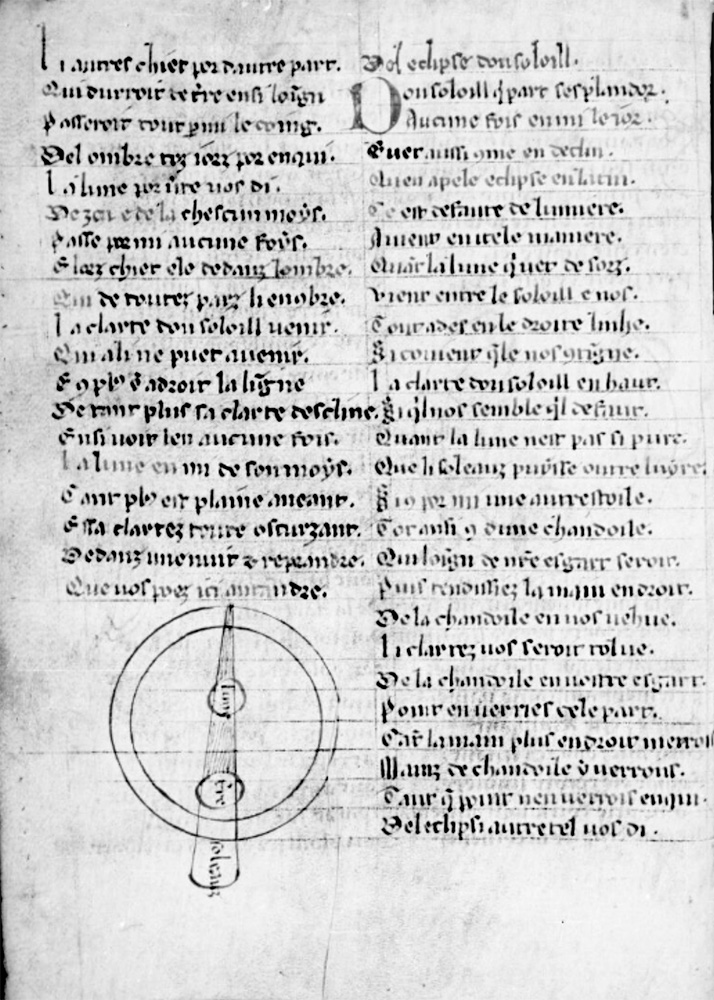 Li autres chiet por dautre part.
Qui durroit te tre ensi loign
Passeroit tout p mi le coing.
Del ombre toz iorz por enqui.
La lune por ure vos di.
De la chescun moys.
Passe por mi aucune foys.
E lorz chiet ele dedanz lombre.
Qui de toutez parz li enobre.
La clarte dou soloill uenir.
Qui a li ne puet auenir.
E 9 pl9 adroit la ligne
De tant plus sa clarte descline.
Ensi uoit len aucune fois.
La lune en mi de son moys.
Tant pl9 est plaine aueant.
E sa clartez toute oscurzant.
Dedanz une nuit & reprandre.
Que vos poez ici antandre.
lune
tre
soleauz
Del eclipse dou soloill.
Dou soloill q part ses plandor.
Aucune fois en mi le ior.
Euer aussi 9me en declin.
Quen apele eclipse en latin.
Ce est defaute de lumiere.
Auient en itele maniere.
Quat la lune q uet desoz.
Vient entre le soloill e nos.
Tout ades en le droite linhe.
Si couient qle nos
La clarte dou soloill en haut.
Si ql nos semble ql defaut.
Quant la lune nest pas si pure.
Que li soleauz puisse outre luyre.
por mi une autrestoile.
Tot ausi 9 dune chandoile.
Qui loign de nre esgart seroit.
Puis tendissiez la main en droit.
De la chandoile en nos uehue.
Li clartez uos seroit tolue.
De la chandoile en uostre esgart.
Point en uerries cele part.
Car la main plus en droit
Mainz de chandoile i uerrons.
Tant q point nen uerrois enqui.
Del eclipsi autretel uos di.